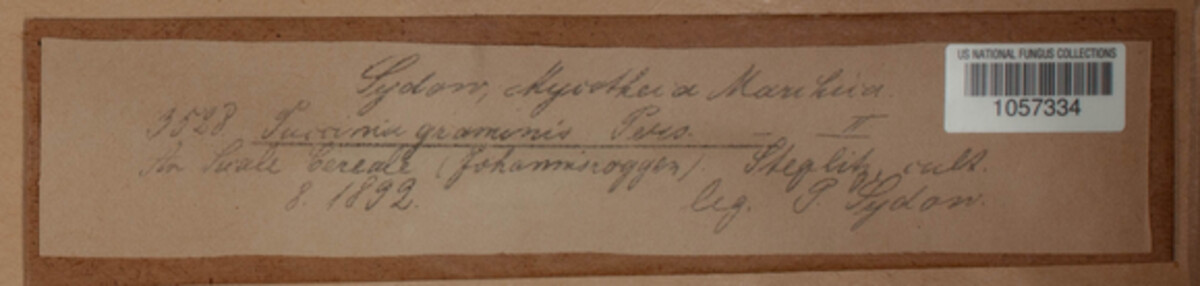 Sydow, Mycotheca Marchica.
US NATIONAL FUNGUS COLLECTIONS
1057334
3528 Puccinia graminis Pers. — II
An Secale Cereale (Johannisroggen). Steglitz, cult.
8. 1892. leg. P. Sydow.